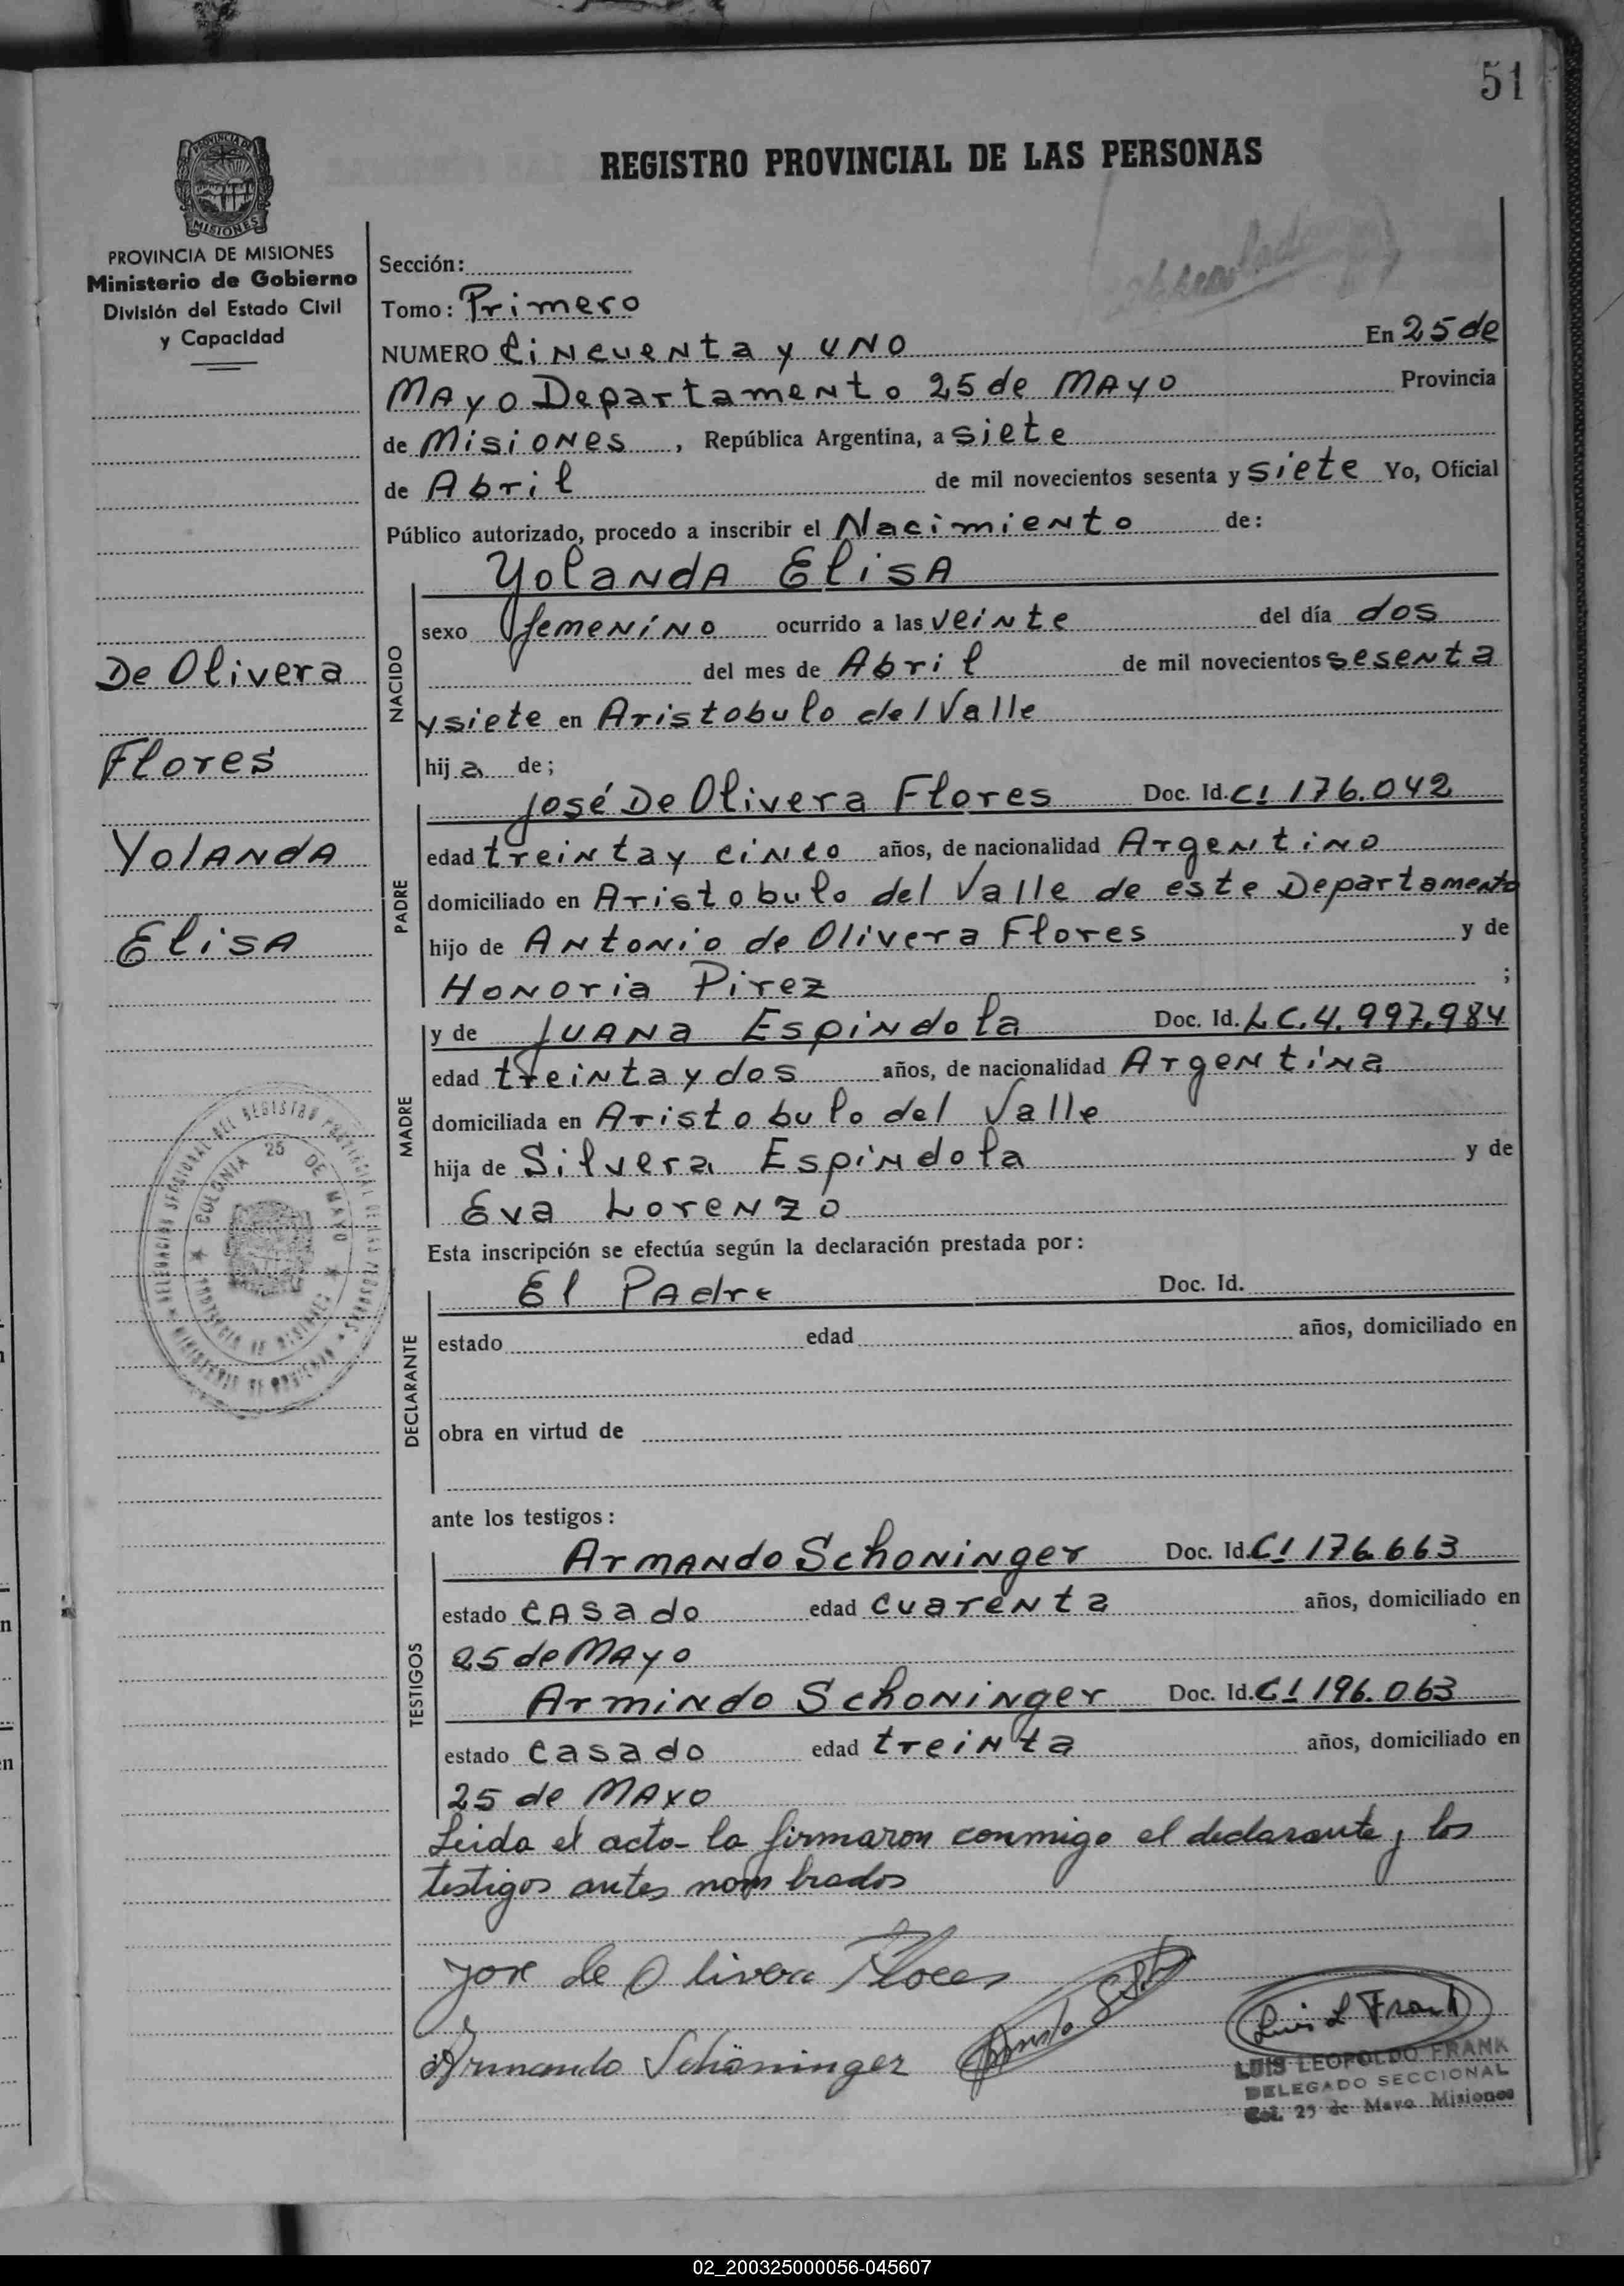 51
REGISTRO PROVINCIAL DE LAS PERSONAS
PROVINCIA DE MISIONES
PROVINCIA DE MISIONES
Ministerio de Gobierno
División del Estado Civil
y Capacidad
De Olivera
Flores
Yolanda
Elisa
DELEGACION SECCIONAL DEL REGISTRO PROVINCIAL DE LAS PERSONAS
MINISTERIO DE GOBIERNO
COLONIA 25 DE MAYO
PROVINCIA DE MISIONES
Sección:
Tomo: Primero
NUMERO Cincuenta y uno En 25 de
Mayo Departamento 25 de Mayo Provincia
de Misiones, República Argentina, a siete
de Abril de mil novecientos sesenta y siete Yo, Oficial
Público autorizado, procedo a inscribir el Nacimiento de:
NACIDO
Yolanda Elisa
sexo femenino ocurrido a las veinte del día dos
del mes de Abril de mil novecientos sesenta
y siete en Aristobulo del Valle
hija de;
PADRE
José De Olivera Flores Doc. Id. CI 176.042
edad treinta y cinco años, de nacionalidad Argentino
domiciliado en Aristobulo del Valle de este Departamento
hijo de Antonio de Olivera Flores y de
Honoria Pirez ;
MADRE
y de Juana Espindola Doc. Id. LC. 4.997.984
edad treinta y dos años, de nacionalidad Argentina
domiciliada en Aristobulo del Valle
hija de Silvera Espindola y de
Eva Lorenzo
Esta inscripción se efectúa según la declaración prestada por:
DECLARANTE
El Padre Doc. Id.
estado edad años, domiciliado en
obra en virtud de
ante los testigos:
TESTIGOS
Armando Schoninger Doc. Id. CI 176.663
estado casado edad cuarenta años, domiciliado en
25 de Mayo
Armindo Schoninger Doc. Id. CI 196.063
estado casado edad treinta años, domiciliado en
25 de Mayo
Leida el acto- la firmaron conmigo el declarante y los
testigos antes nombrados
Jose de Olivera Flores
Armando Schöninger
Luis L Frank
LUIS LEOPOLDO FRANK
DELEGADO SECCIONAL
Col. 25 de Mayo Misiones
02_200325000056-045607